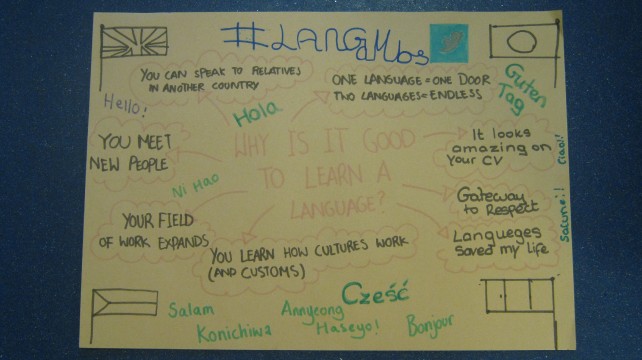 #LANGAMbs
YOU CAN SPEAK TO RELATIVES
IN ANOTHER COUNTRY
ONE LANGUAGE = ONE DOOR
TWO LANGUAGES = ENDLESS
Guten
Tag
Hello!
Hola
WHY IS IT GOOD
TO LEARN A
LANGUAGE?
It looks
amazing on
Your CV
Ciao!
YOU MEET
NEW PEOPLE
Ni Hao
Gateway
to Respect
YOUR FIELD
OF WORK EXPANDS
YOU LEARN HOW CULTURES WORK
(AND CUSTOMS)
Langueges
Saved my Life
Cześć
Salam
Konichiwa
Annyeong
Haseyo!
Bonjour